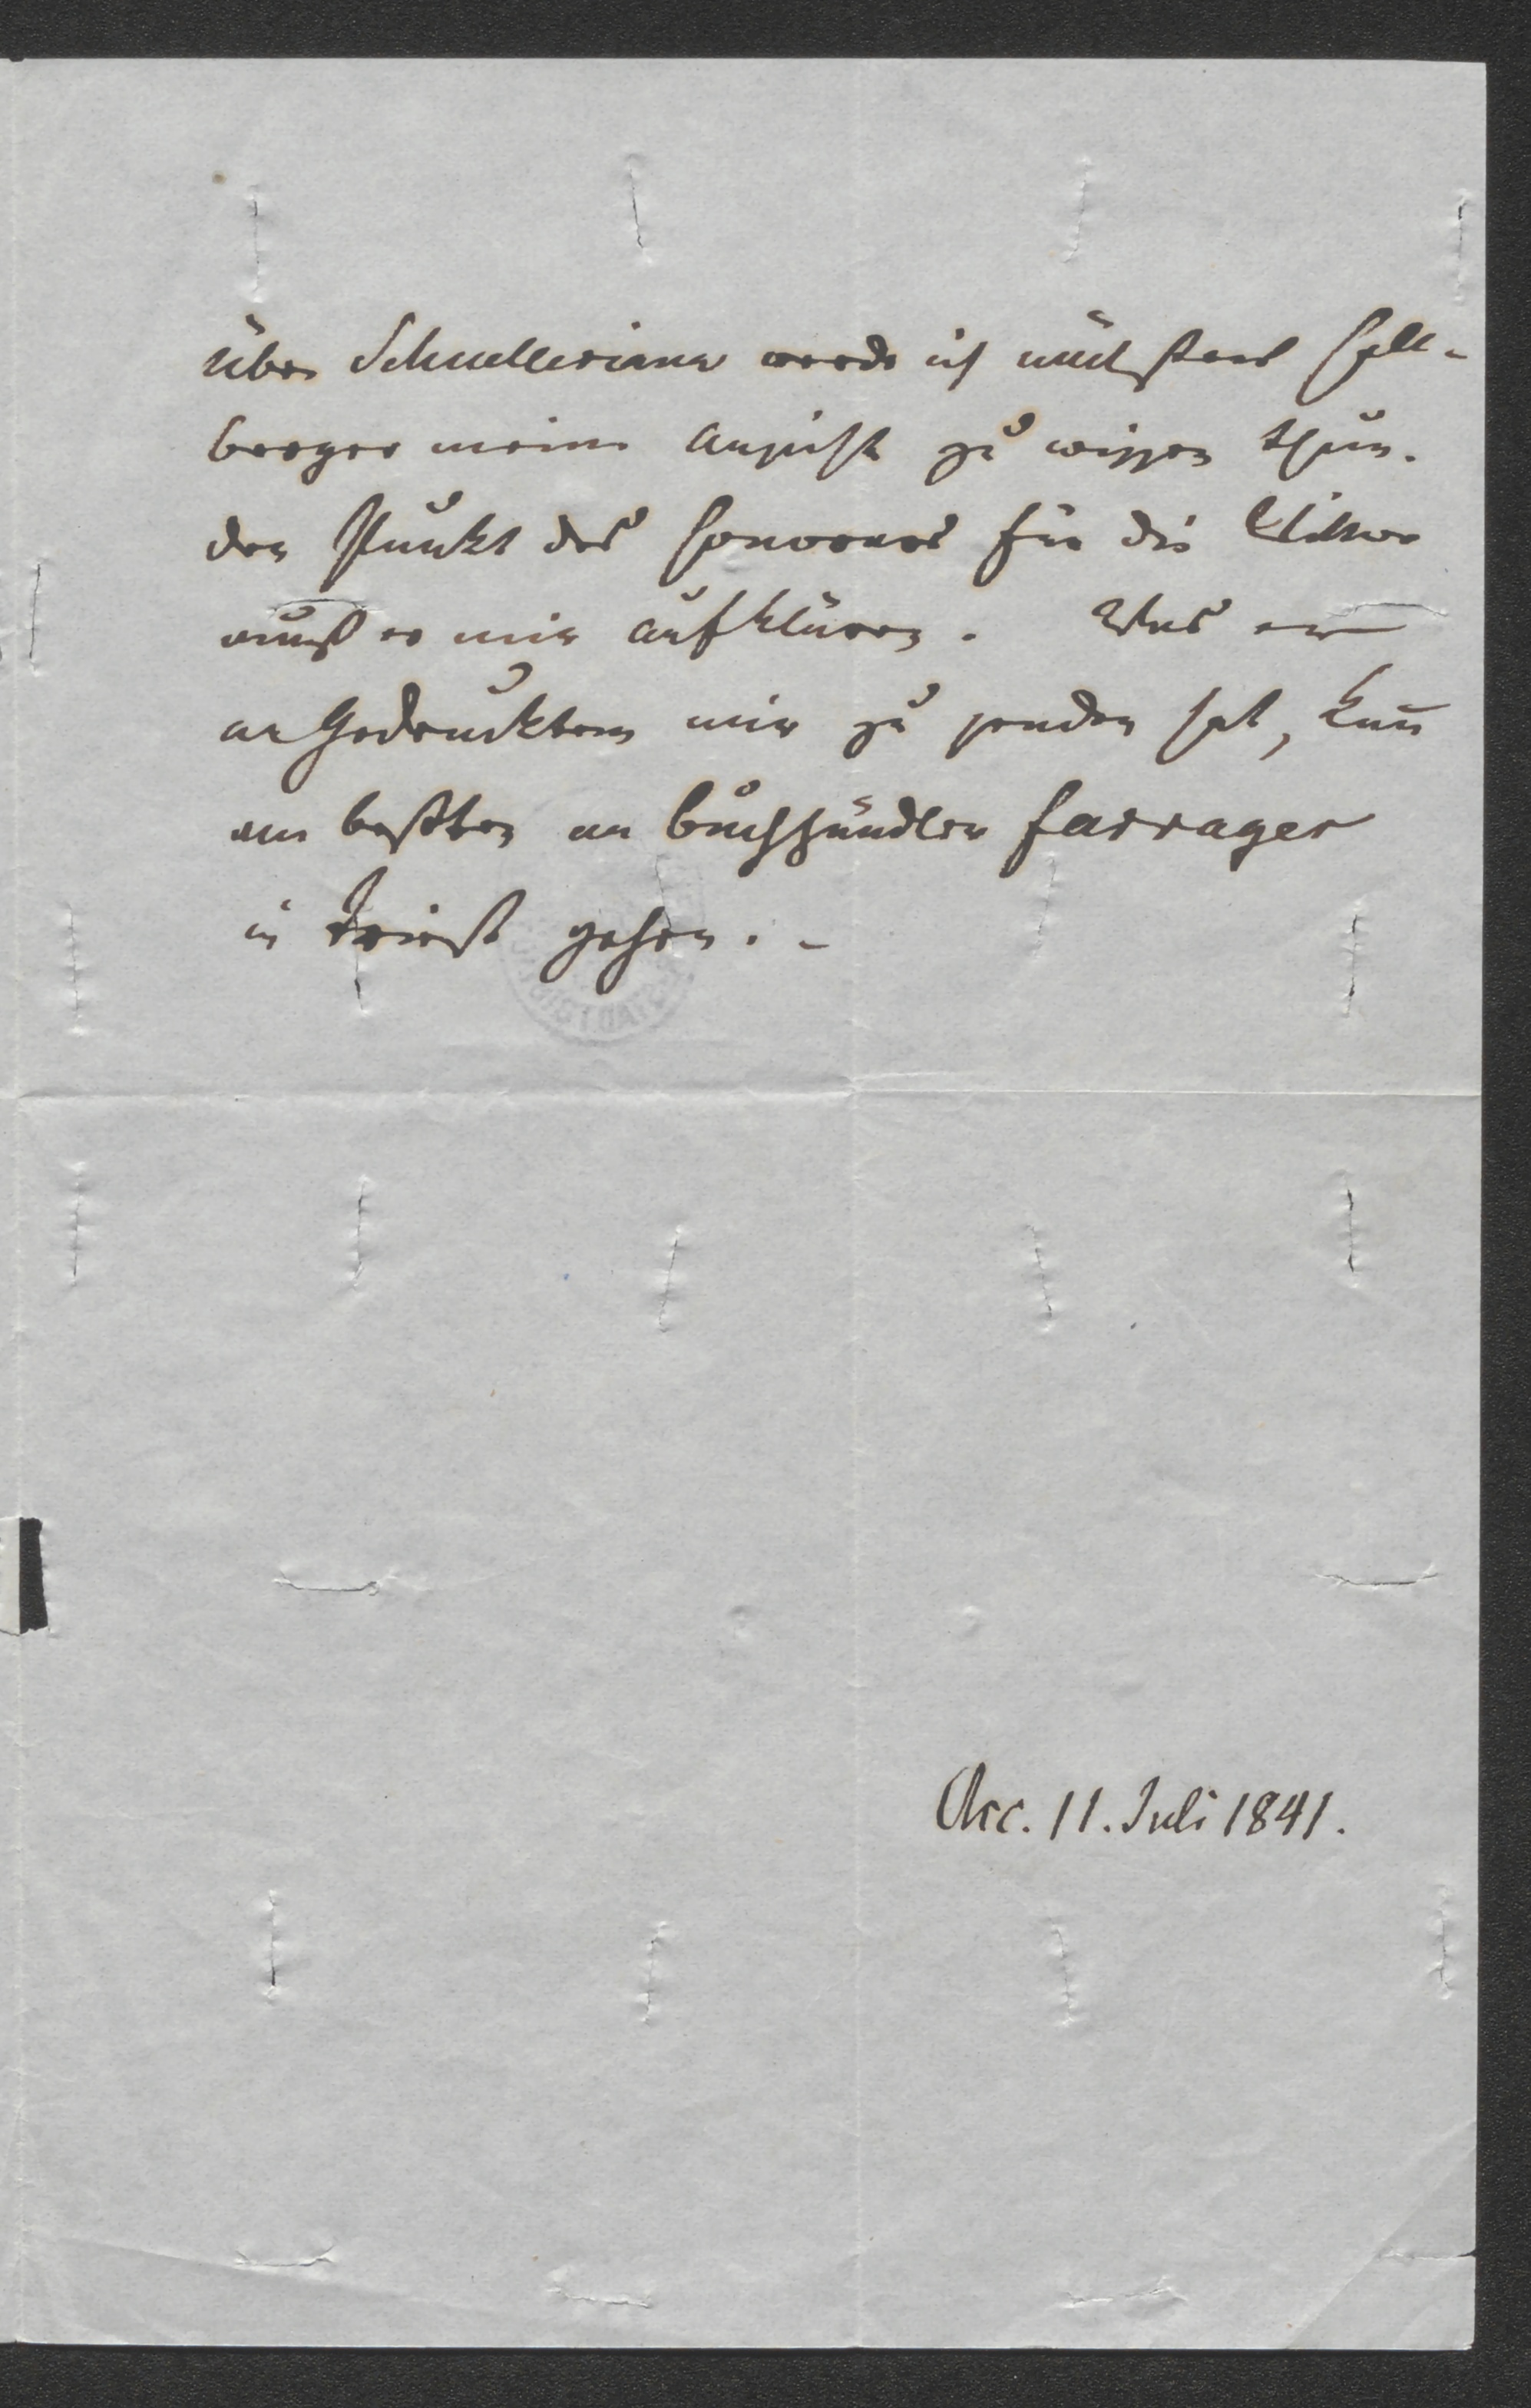 über Schnelleriana werde ich nächstens Hall-
berger meine Ansicht zu wissen thun.
den Punkt des Honorares für die
muß er mir aufklären. Was er
an Gedrucktem mir zu senden hat, kann
am beßten an Buchhändler Farrager
in Triest gehen. –
Acc. 11. Juli 1841.